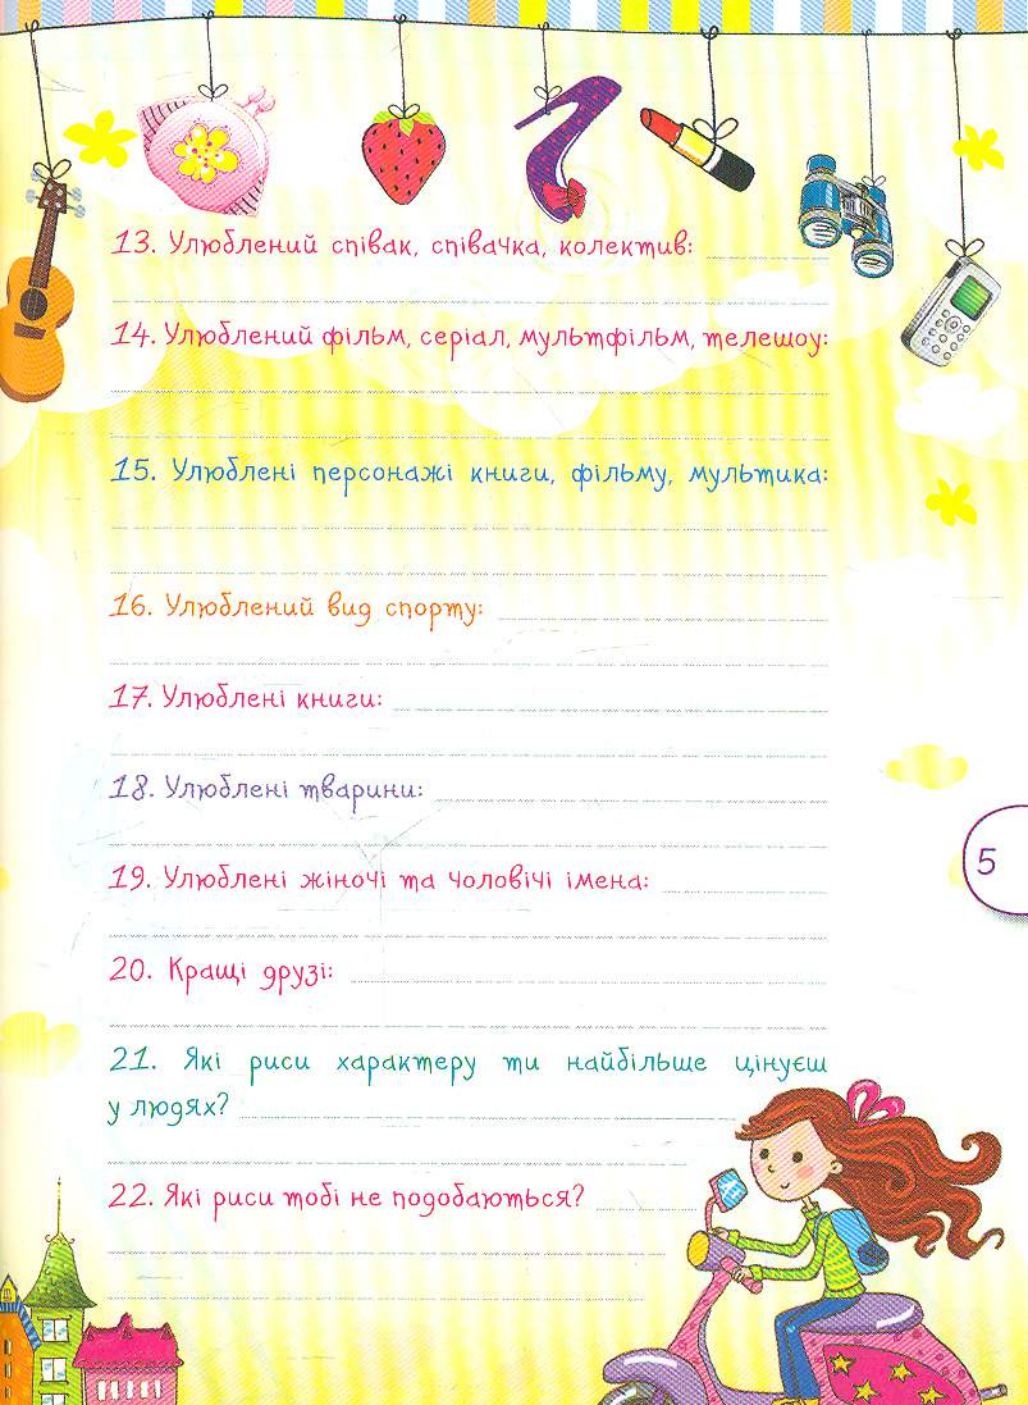 13. Улюблений співак, співачка, колектив:
14. Улюблений фільм, серіал, мультфільм, телешоу:
15. Улюблені персонажі книги, фільму, мультика:
16. Улюблений вид спорту:
17. Улюблені книги:
18. Улюблені тварини:
19. Улюблені жіночі та чоловічі імена:
20. Кращі друзі:
5
21. Які риси характеру ти найбільше цінуєш
у людях?
22. Які риси тобі не подобаються?